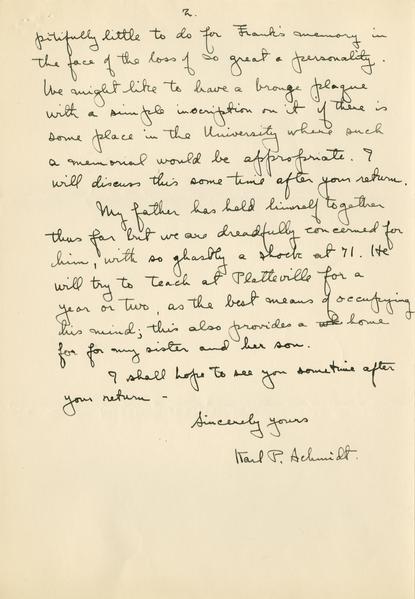 2.
pitifully little to do for Frank's memory in
the face of the loss of so great a personality.
We might like to have a bronze plaque
with a simple inscription on it if there is
some place in the University where such
a memorial would be appropriate. I
will discuss this some time after your return.
My father has held himself together
thus far but we are dreadfully concerned for
him, with so ghastly a shock at 71. He
will try to teach at Platteville for a
year or two, as the best means of occupying
his mind; this also provides a home
for for my sister and her son.
I shall hope to see you sometime after
your return -
Sincerely yours
Karl P. Schmidt.